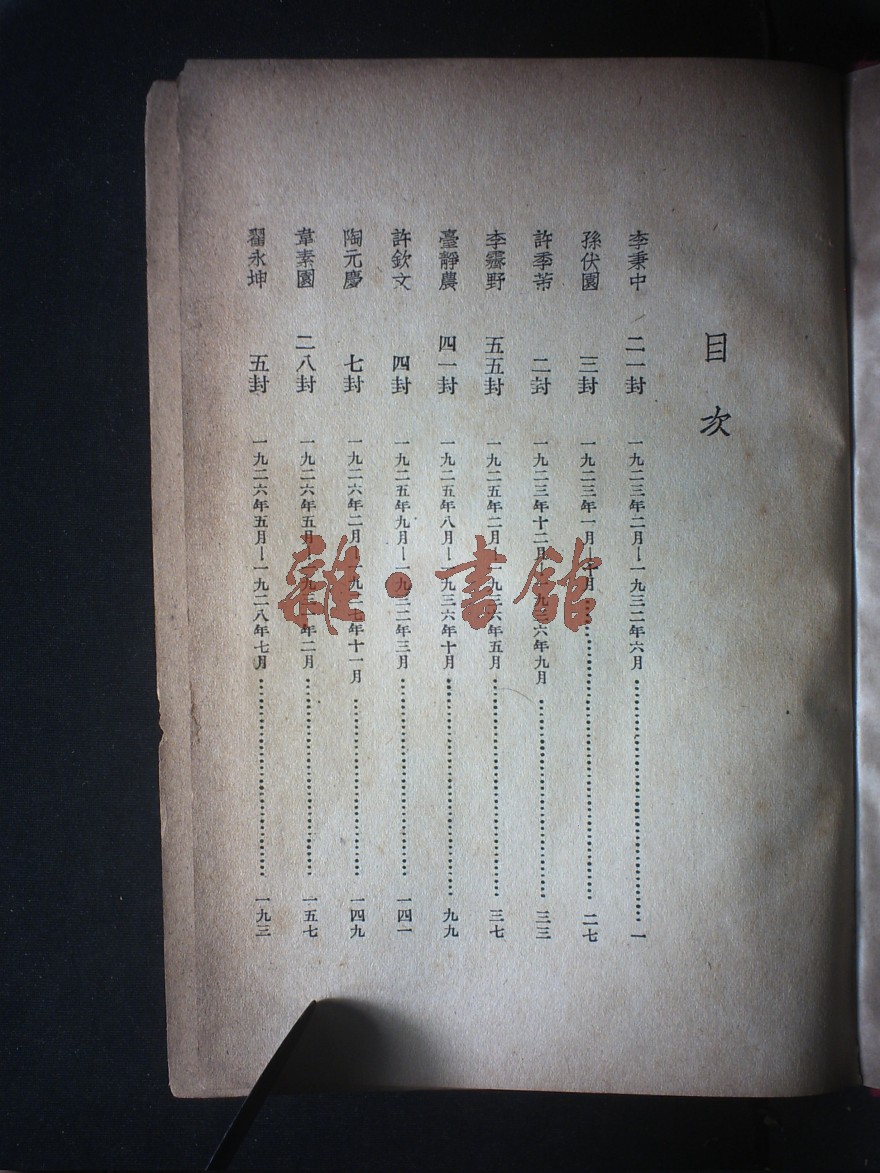 目次
李秉中 二一封 一九二三年二月—一九三二年六月……一
孫伏園 三封 一九二三年一月—十月……二七
許季芾 二封 一九二三年十二月—一九三六年九月……三三
李霽野 五五封 一九二五年二月—一九三六年五月……三七
臺靜農 四一封 一九二五年八月—一九三六年十月……九九
許欽文 四封 一九二五年九月—一九三二年三月……一四一
陶元慶 七封 一九二六年二月—一九二七年十一月……一四九
韋素園 二八封 一九二六年五月—一九三一年二月……一五七
翟永坤 五封 一九二六年五月—一九二八年七月……一九三
雜·書館